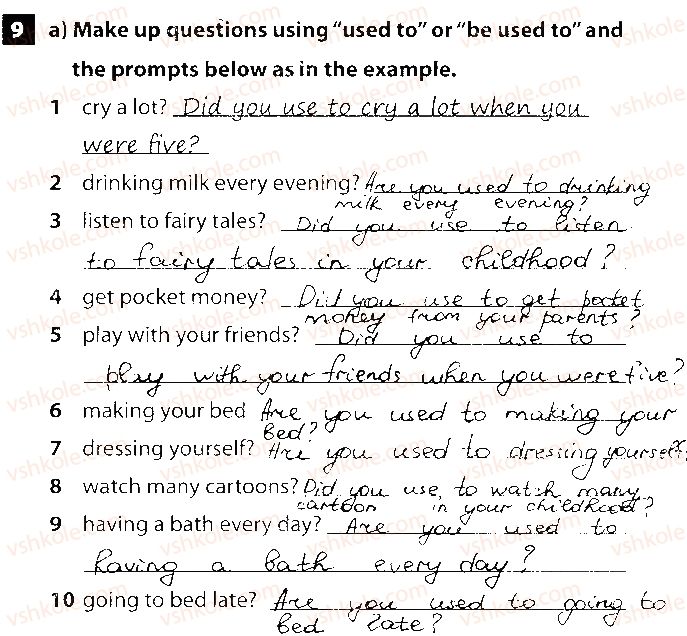 9 a) Make up questions using “used to” or “be used to” and
the prompts below as in the example.
1 cry a lot? Did you use to cry a lot when you
were five?
2 drinking milk every evening? Are you used to drinking
milk every evening?
3 listen to fairy tales? Did you use to listen
to fairy tales in your childhood?
4 get pocket money? Did you use to get pocket
money from your parents?
5 play with your friends? Did you use to
play with your friends when you were five?
6 making your bed Are you used to making your
bed?
7 dressing yourself? Are you used to dressing yourself?
8 watch many cartoons? Did you use to watch many
cartoon in your childhood?
9 having a bath every day? Are you used to
having a bath every day?
10 going to bed late? Are you used to going to
bed late?